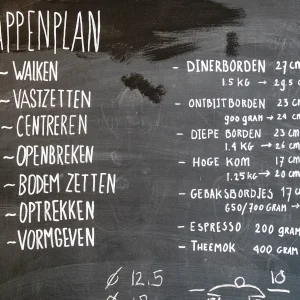 APPENPLAN
~ WALKEN
~ VASTZETTEN
~ CENTREREN
~ OPENBREKEN
~ BODEM ZETTEN
~ OPTREKKEN
~ VORMGEVEN
- DINERBORDEN 27 cm
1.5 KG →
- ONTBIJTBORDEN 23 cm
900 gram → 24 cm
- DIEPE BORDEN 23 cm
1.4 KG → 26 cm
- HOGE KOM 17
1.25 KG → 20 cm
- GEBAKSBORDJES 17 c
650/700 gram →
- ESPRESSO 200 gram
- THEEMOK 400 GRAM
Ø 12.5
10